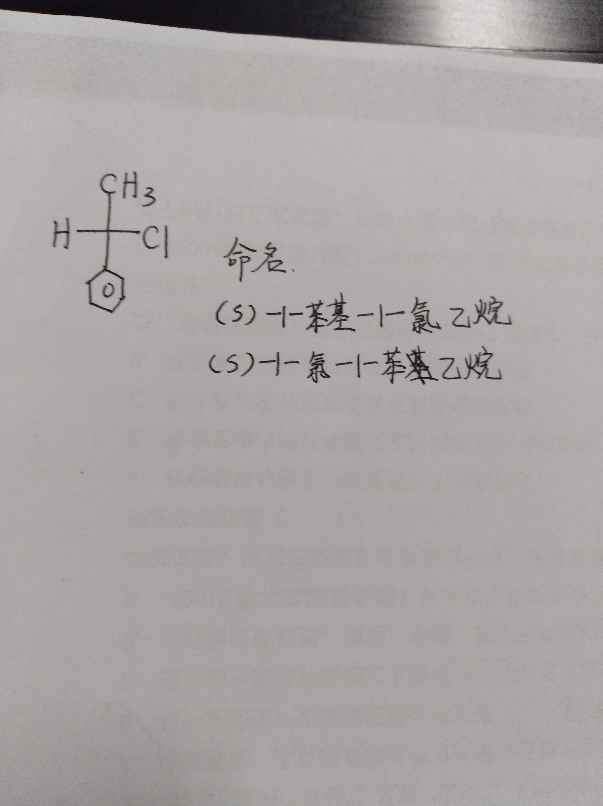 CH3
H Cl
命名.
(S)-1-苯基-1-氯乙烷
(S)-1-氯-1-苯基乙烷